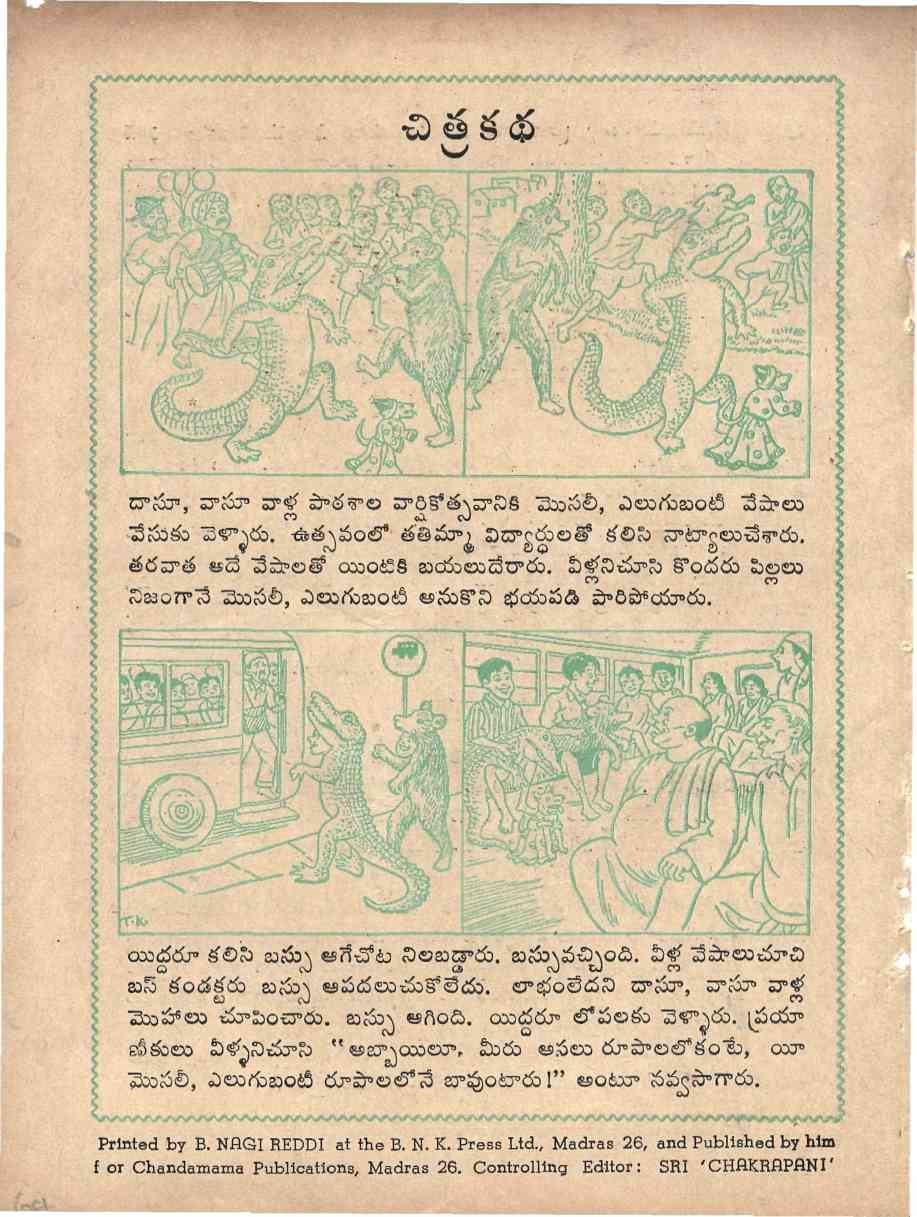 చిత్రకథ
దాసూ, వాసూ వాళ్ల పాఠశాల వార్షికోత్సవానికి మొసలీ, ఎలుగుబంటీ వేషాలు
వేసుకు వెళ్ళారు. ఉత్సవంలో తతిమ్మా విద్యార్ధులతో కలిసి నాట్యాలుచేశారు.
తరవాత ఆదే వేషాలతో యింటికి బయలుదేరారు. వీళ్లనిచూసి కొందరు పిల్లలు
నిజంగానే మొసలీ, ఎలుగుబంటీ అనుకొని భయపడి పారిపోయారు.
T.K.
యిద్దరూ కలిసి బస్సు ఆగేచోట నిలబడ్డారు. బస్సువచ్చింది. వీళ్ల వేషాలుచూచి
బస్ కండక్టరు బస్సు ఆపదలుచుకోలేదు. లాభంలేదని దాసూ, వాసూ వాళ్ల
మొహాలు చూపించారు. బస్సు ఆగింది. యిద్దరూ లోపలకు వెళ్ళారు. ప్రయా
ణీకులు వీళ్ళనిచూసి “అబ్బాయిలూ, మీరు అసలు రూపాలలోకంటే, యీ
మొసలీ, ఎలుగుబంటీ రూపాలలోనే బావుంటారు!” అంటూ నవ్వసాగారు.
Printed by B. NAGI REDDI at the B. N. K. Press Ltd., Madras 26, and Published by him
for Chandamama Publications, Madras 26. Controlling Editor: SRI ‘CHAKRAPANI’